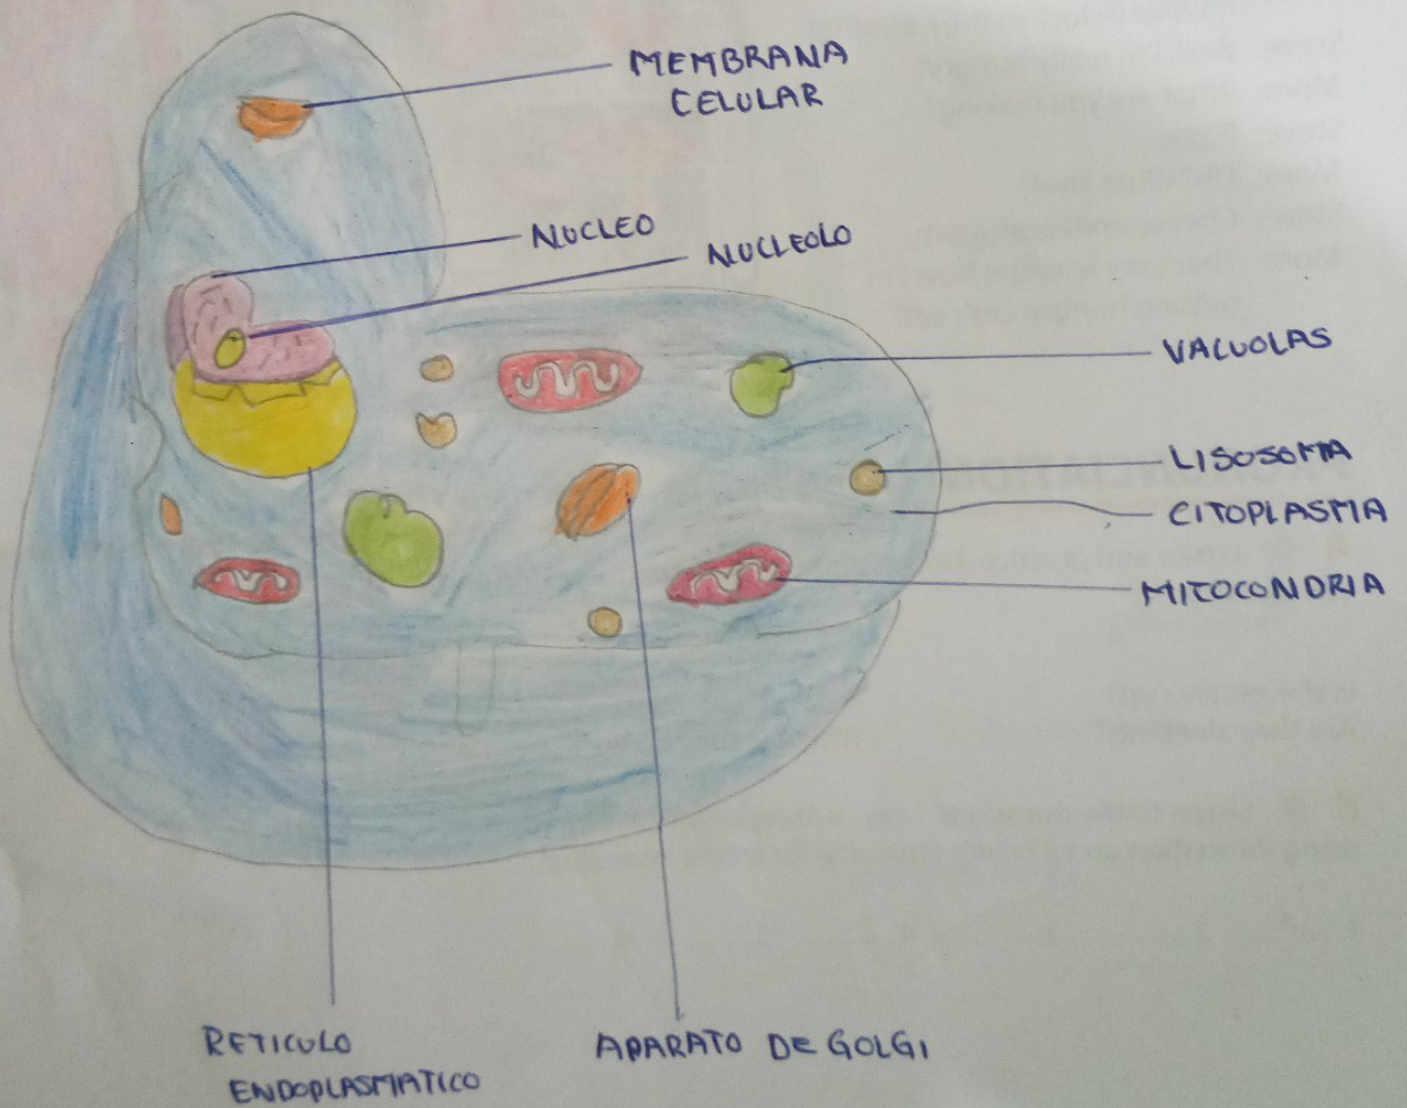 MEMBRANA
CELULAR
NUCLEO
NUCLEOLO
VACUOLAS
LISOSOMA
CITOPLASMA
MITOCONDRIA
RETICULO
ENDOPLASMATICO
APARATO DE GOLGI